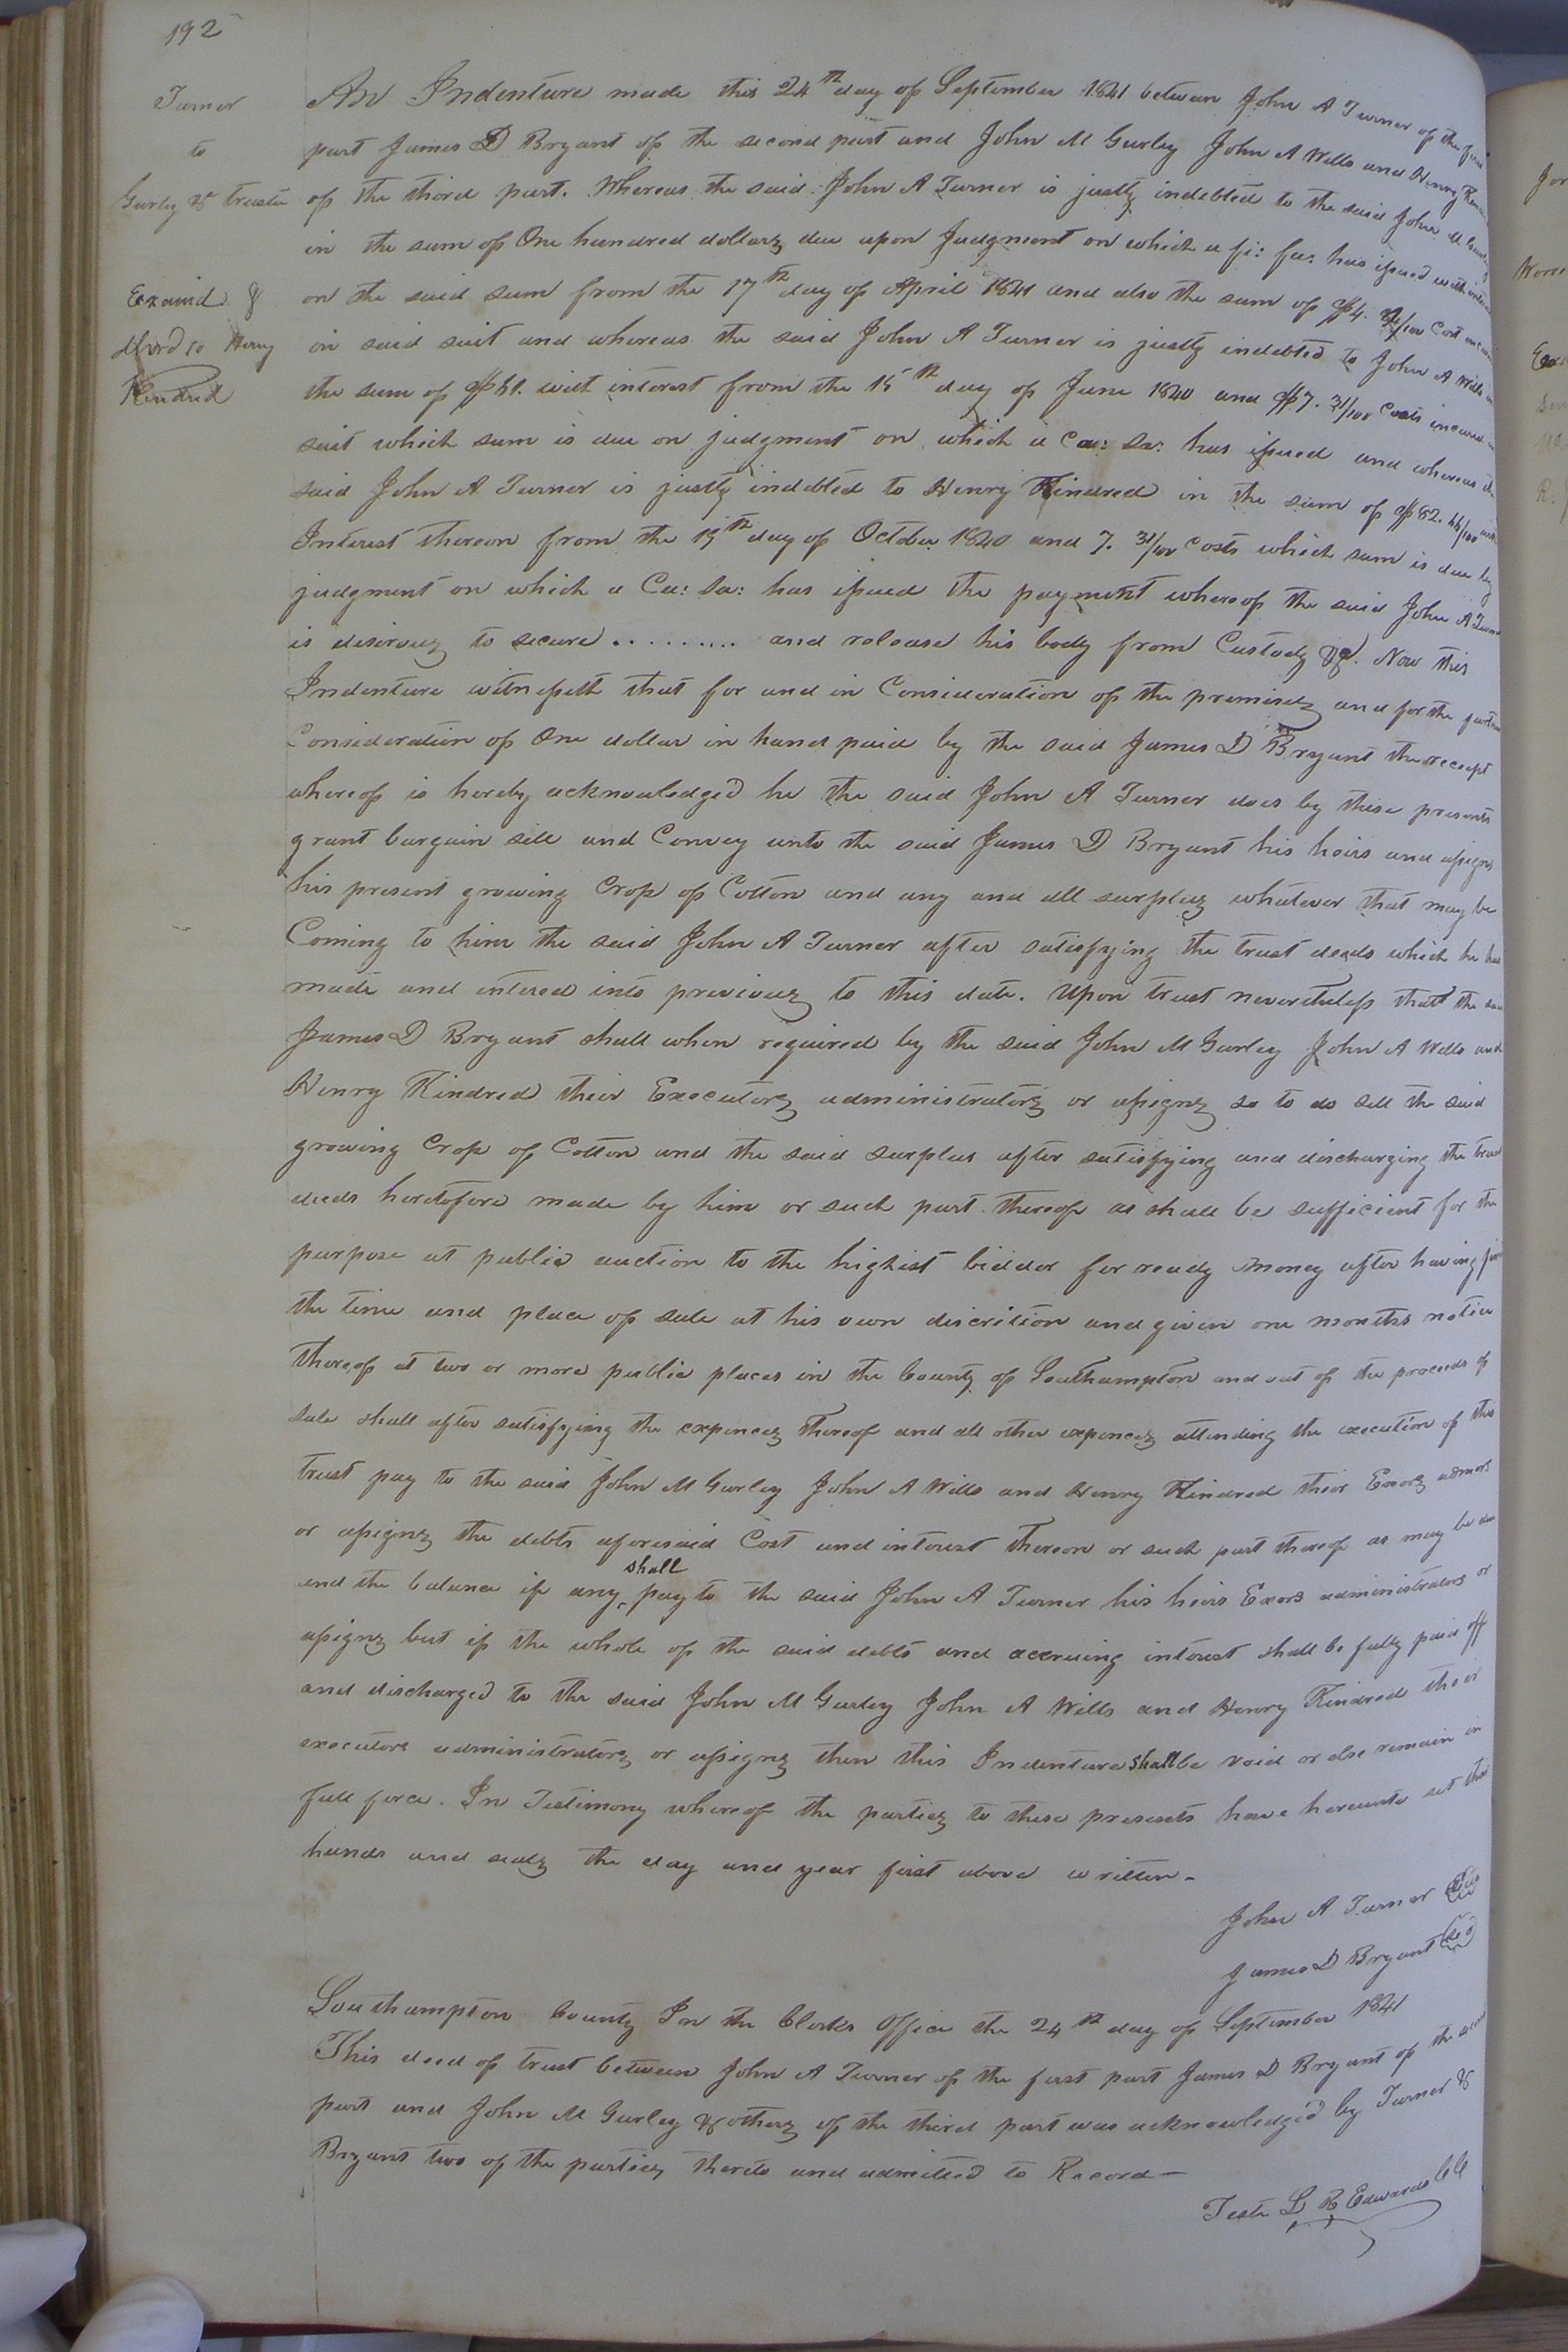 192
Turner
to
Gurley & trustee
Examd &
dlvrd to Henry
Kindred
An Indenture made this 24th day of September 1841 between John A Turner of the first
part James D Bryant of the second part and John M Gurley John A Wills and Henry
of the third part. Whereas the said John A Turner is justly indebted to the said John M
in the sum of One hundred dollars due upon Judgment on which a fi: fa: has issued with
on the said sum from the 17th day of April 1841 and also the sum of $4. /100 Cost
in said suit and whereas the said John A Turner is justly indebted to John A Wills in
the sum of with interest from the 15th day of June 1840 and $7. 31/100 Costs incurred in
suit which sum is due on judgment on which a Ca: Sa: has issued and whereas the
said John A Turner is justly indebted to Henry Kindred in the sum of with
Interest thereon from the 19th day of October 1840 and 7. 31/100 Costs which sum is due by
judgment on which a Ca: Sa: has issued the payment whereof the said John A Turner
is desirous to secure .......... and release his body from Custody &c. Now this
Indenture witnesseth that for and in Consideration of the premises and for the further
Consideration of One dollar in hand paid by the said James D Bryant the receipt
whereof is hereby acknowledged he the said John A Turner does by these presents
grant bargain sell and Convey unto the said James D Bryant his heirs and assigns
his present growing Crop of Cotton and any and all surplus whatever that may be
Coming to him the said John A Turner after satisfying the trust deeds which he has
made and entered into previous to this date. Upon trust nevertheless that the said
James D Bryant shall when required by the said John M Gurley John A Wills and
Henry Kindred their Executors administrators or assigns so to do sell the said
growing Crop of Cotton and the said surplus after satisfying and discharging the trust
deeds heretofore made by him or such part thereof as shall be sufficient for the
purpose at public auction to the highest bidder for ready money after having
the time and place of sale at his own discrition and given one months notice
thereof at two or more public places in the County of Southampton and out of the proceeds of
sale shall after satisfying the expences thereof and all other expences attending the execution of this
trust pay to the said John M Gurley John A Wills and Henry Kindred their Exors admors
or assigns the debts aforesaid Cost and interest thereon or such part thereof as may be due
and the balance if any shall pay to the said John A Turner his heirs Exors administrators or
assigns but if the whole of the said debts and accruing interest shall be fully paid off
and discharged to the said John M Gurley John A Wills and Henry Kindred their
executors administrators or assigns then this Indenture shall be void or else remain in
full force. In Testimony whereof the parties to these presents have hereunto set their
hands and seals the day and year first above written -
John A Turner
James D Bryant
Southampton County In the Clerks Office the 24th day of September 1841
This deed of trust between John A Turner of the first part James D Bryant of the second
part and John M Gurley & others of the third part was acknowledged by Turner &
Bryant two of the parties thereto and admitted to Record -
Teste L R Edwards Clk